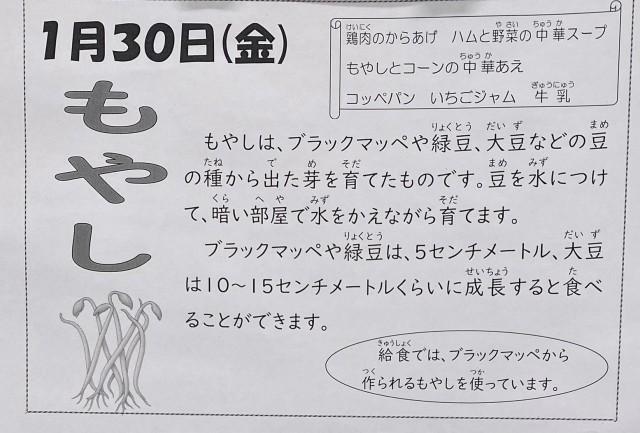 1月30日(金)
鶏肉のからあげ　ハムと野菜の中華スープ
もやしとコーンの中華あえ
コッペパン　いちごジャム　牛乳
もやし
もやしは、ブラックマッペや緑豆、大豆などの豆
の種から出た芽を育てたものです。豆を水につけ
て、暗い部屋で水をかえながら育てます。
ブラックマッペや緑豆は、5センチメートル、大豆
は10～15センチメートルくらいに成長すると食べ
ることができます。
給食では、ブラックマッペから
作られるもやしを使っています。